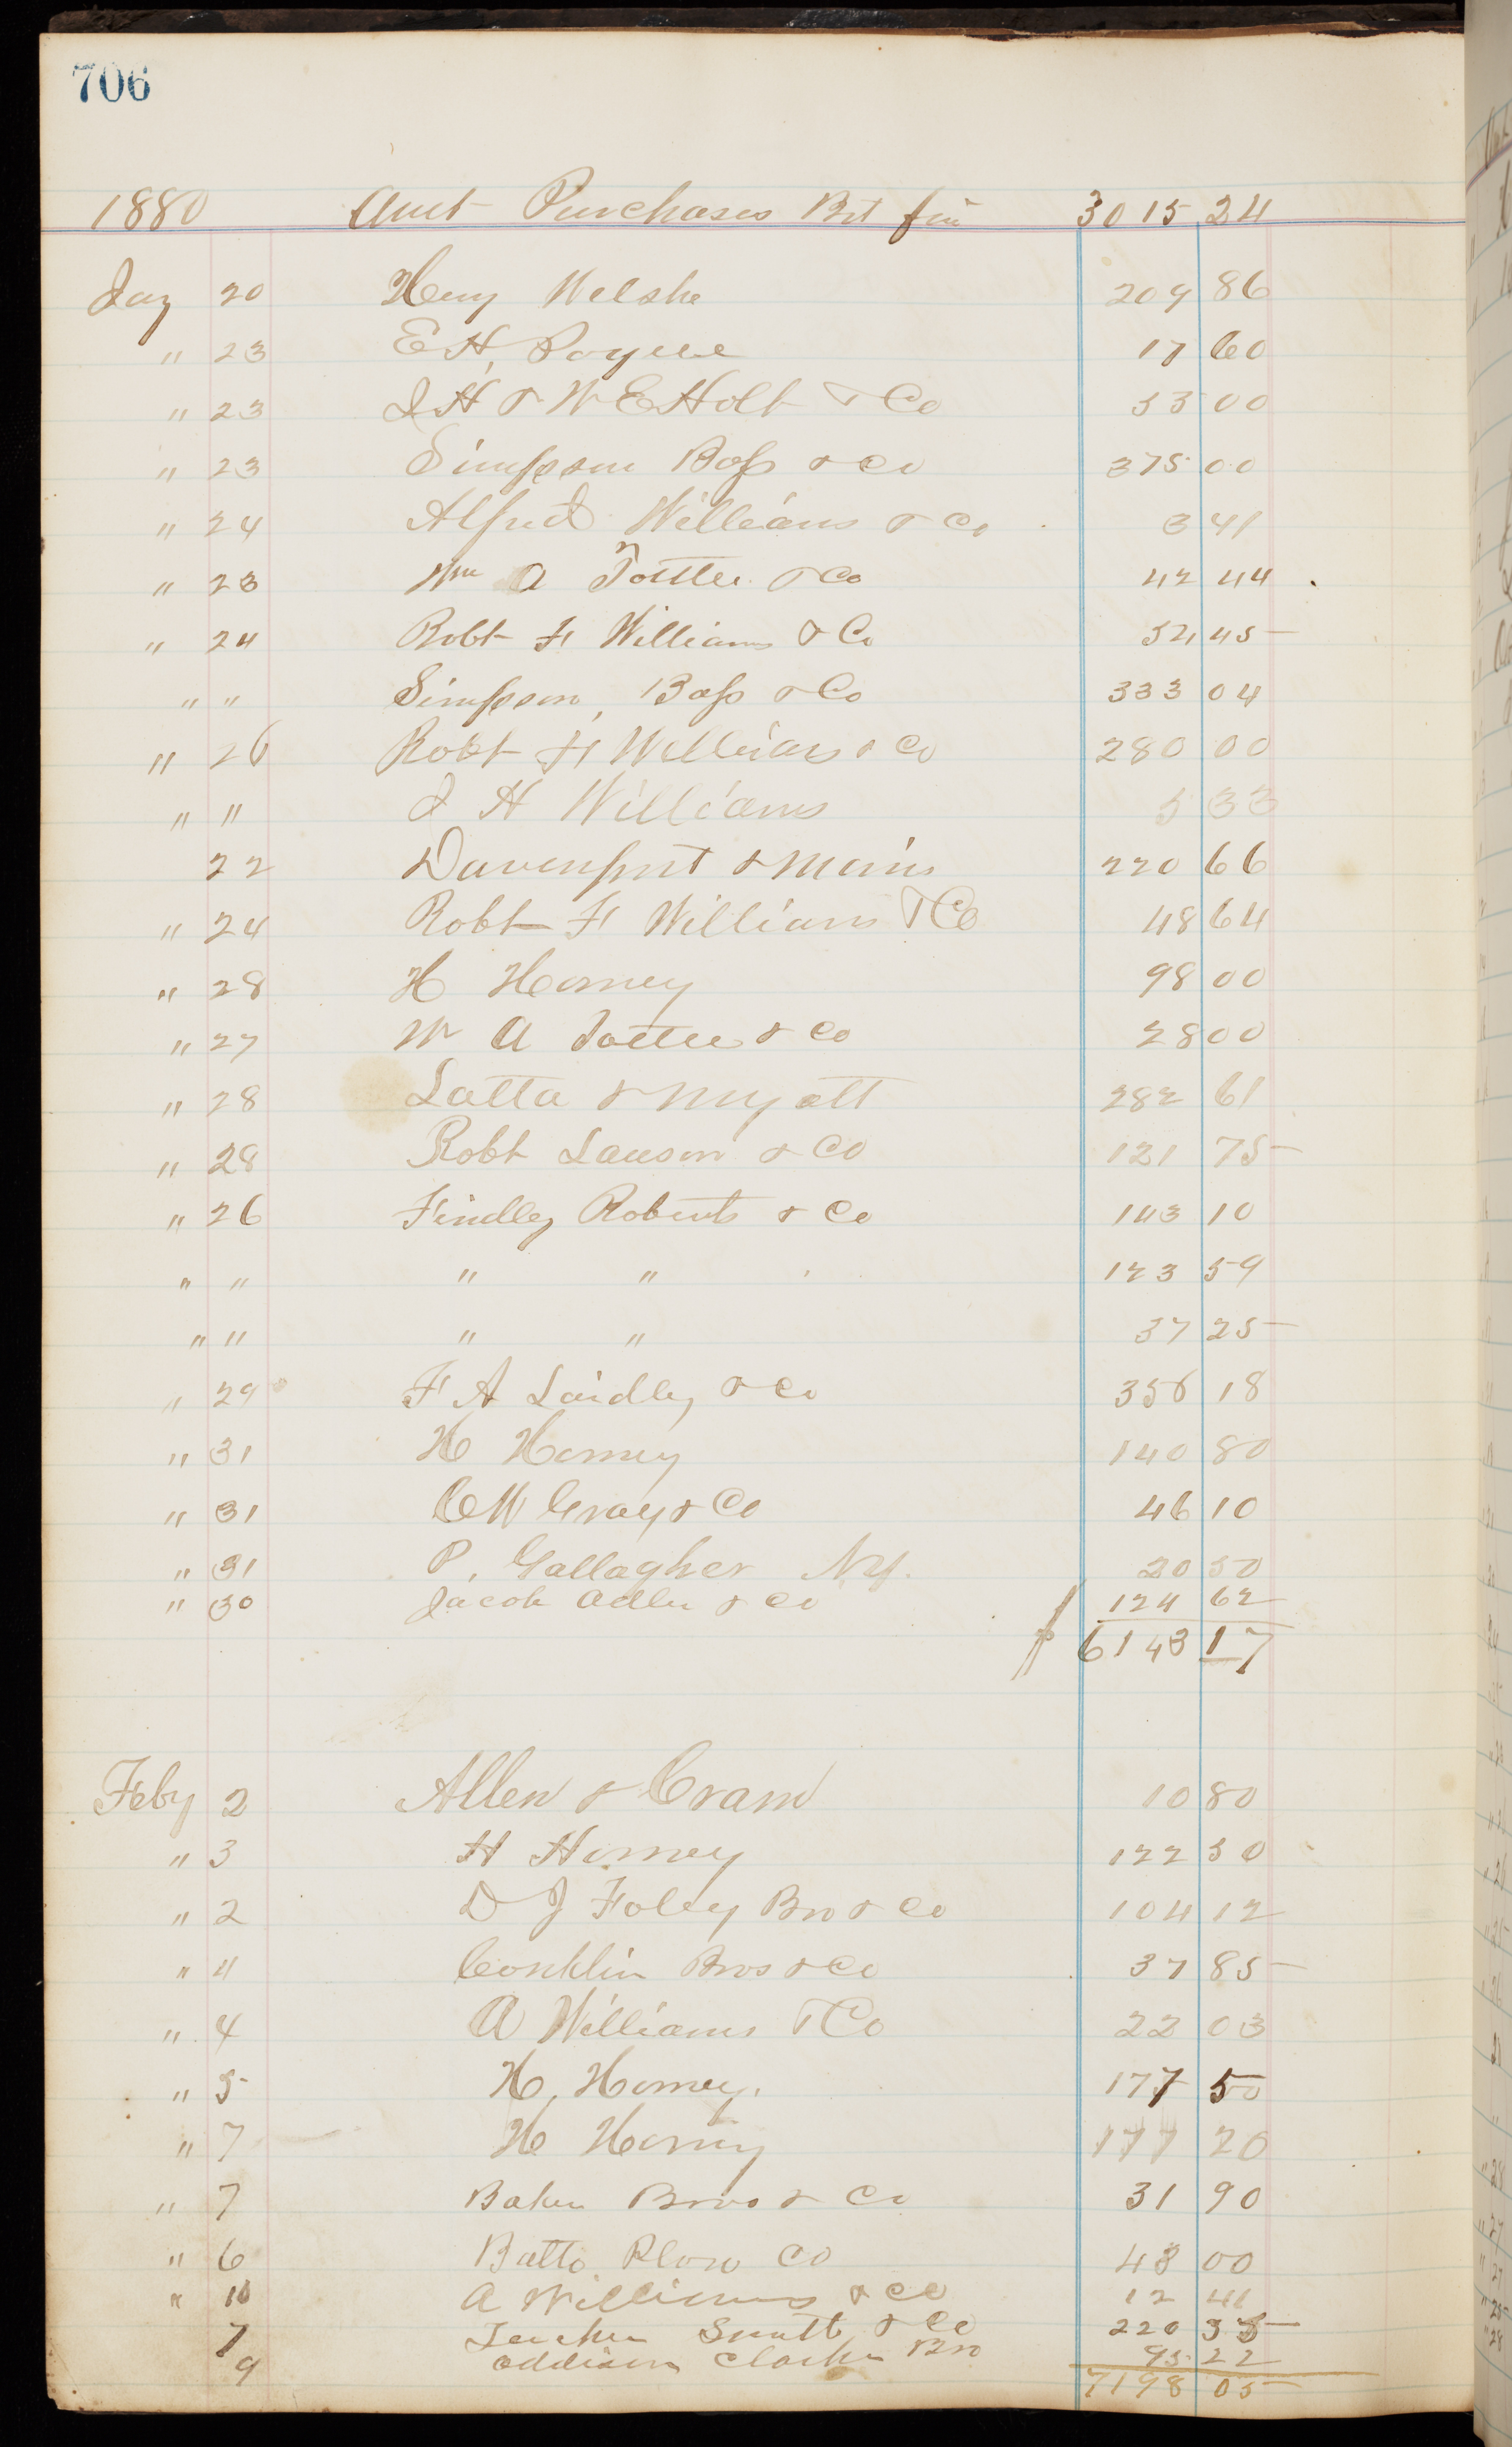 706
1880 Amt Purchases Brt for 3015 24
Jay 20 Heny Welshe 209 86
" 23 E H, Payne 17 60
" 23 J H & W E Holt & Co 33 00
" 23 Simpson Bass & Co 375 00
" 24 Alfred Williams & Co 3 41
" 23 Wm A & Co 42 44
" 24 Robt F Williams & Co 54 45
" " Simpson, Bass & Co 333 04
" 26 Robt F Williams & Co 280 00
" " J H Williams 5 33
22 Davenport & Morris 220 66
" 24 Robt F Williams & Co 48 64
" 28 H Horney 98 00
" 27 W A & Co 28 00
" 28 Latta & Myatt 282 61
" 28 Robt Lawson & Co 121 75
" 26 Findley Roberts & Co 143 10
" " " " 123 59
" " " " 37 25
" 29 F A Laidley & Co 356 18
" 31 H Horney 140 80
" 31 C W Gray & Co 46 10
" 31 P. Gallagher N.Y. 20 50
" 30 Jacob Adler & Co 124 62
6143 17
Feby 2 Allen & Cram 10 80
" 3 H Horney 122 50
" 2 D J Foley Bro & Co 104 12
" 4 Conklin Bros & Co 37 85
" 4 A Williams & Co 22 03
" 5 H, Horney. 177 50
" 7 H Horney 177 20
" 7 Baker Bros & Co 31 90
" 6 Balto. Plow Co 43 00
" 10 A Williams & Co 12 41
7 Smith & Co 220 35
9 Addison Clarke Bro 95 22
7198 05